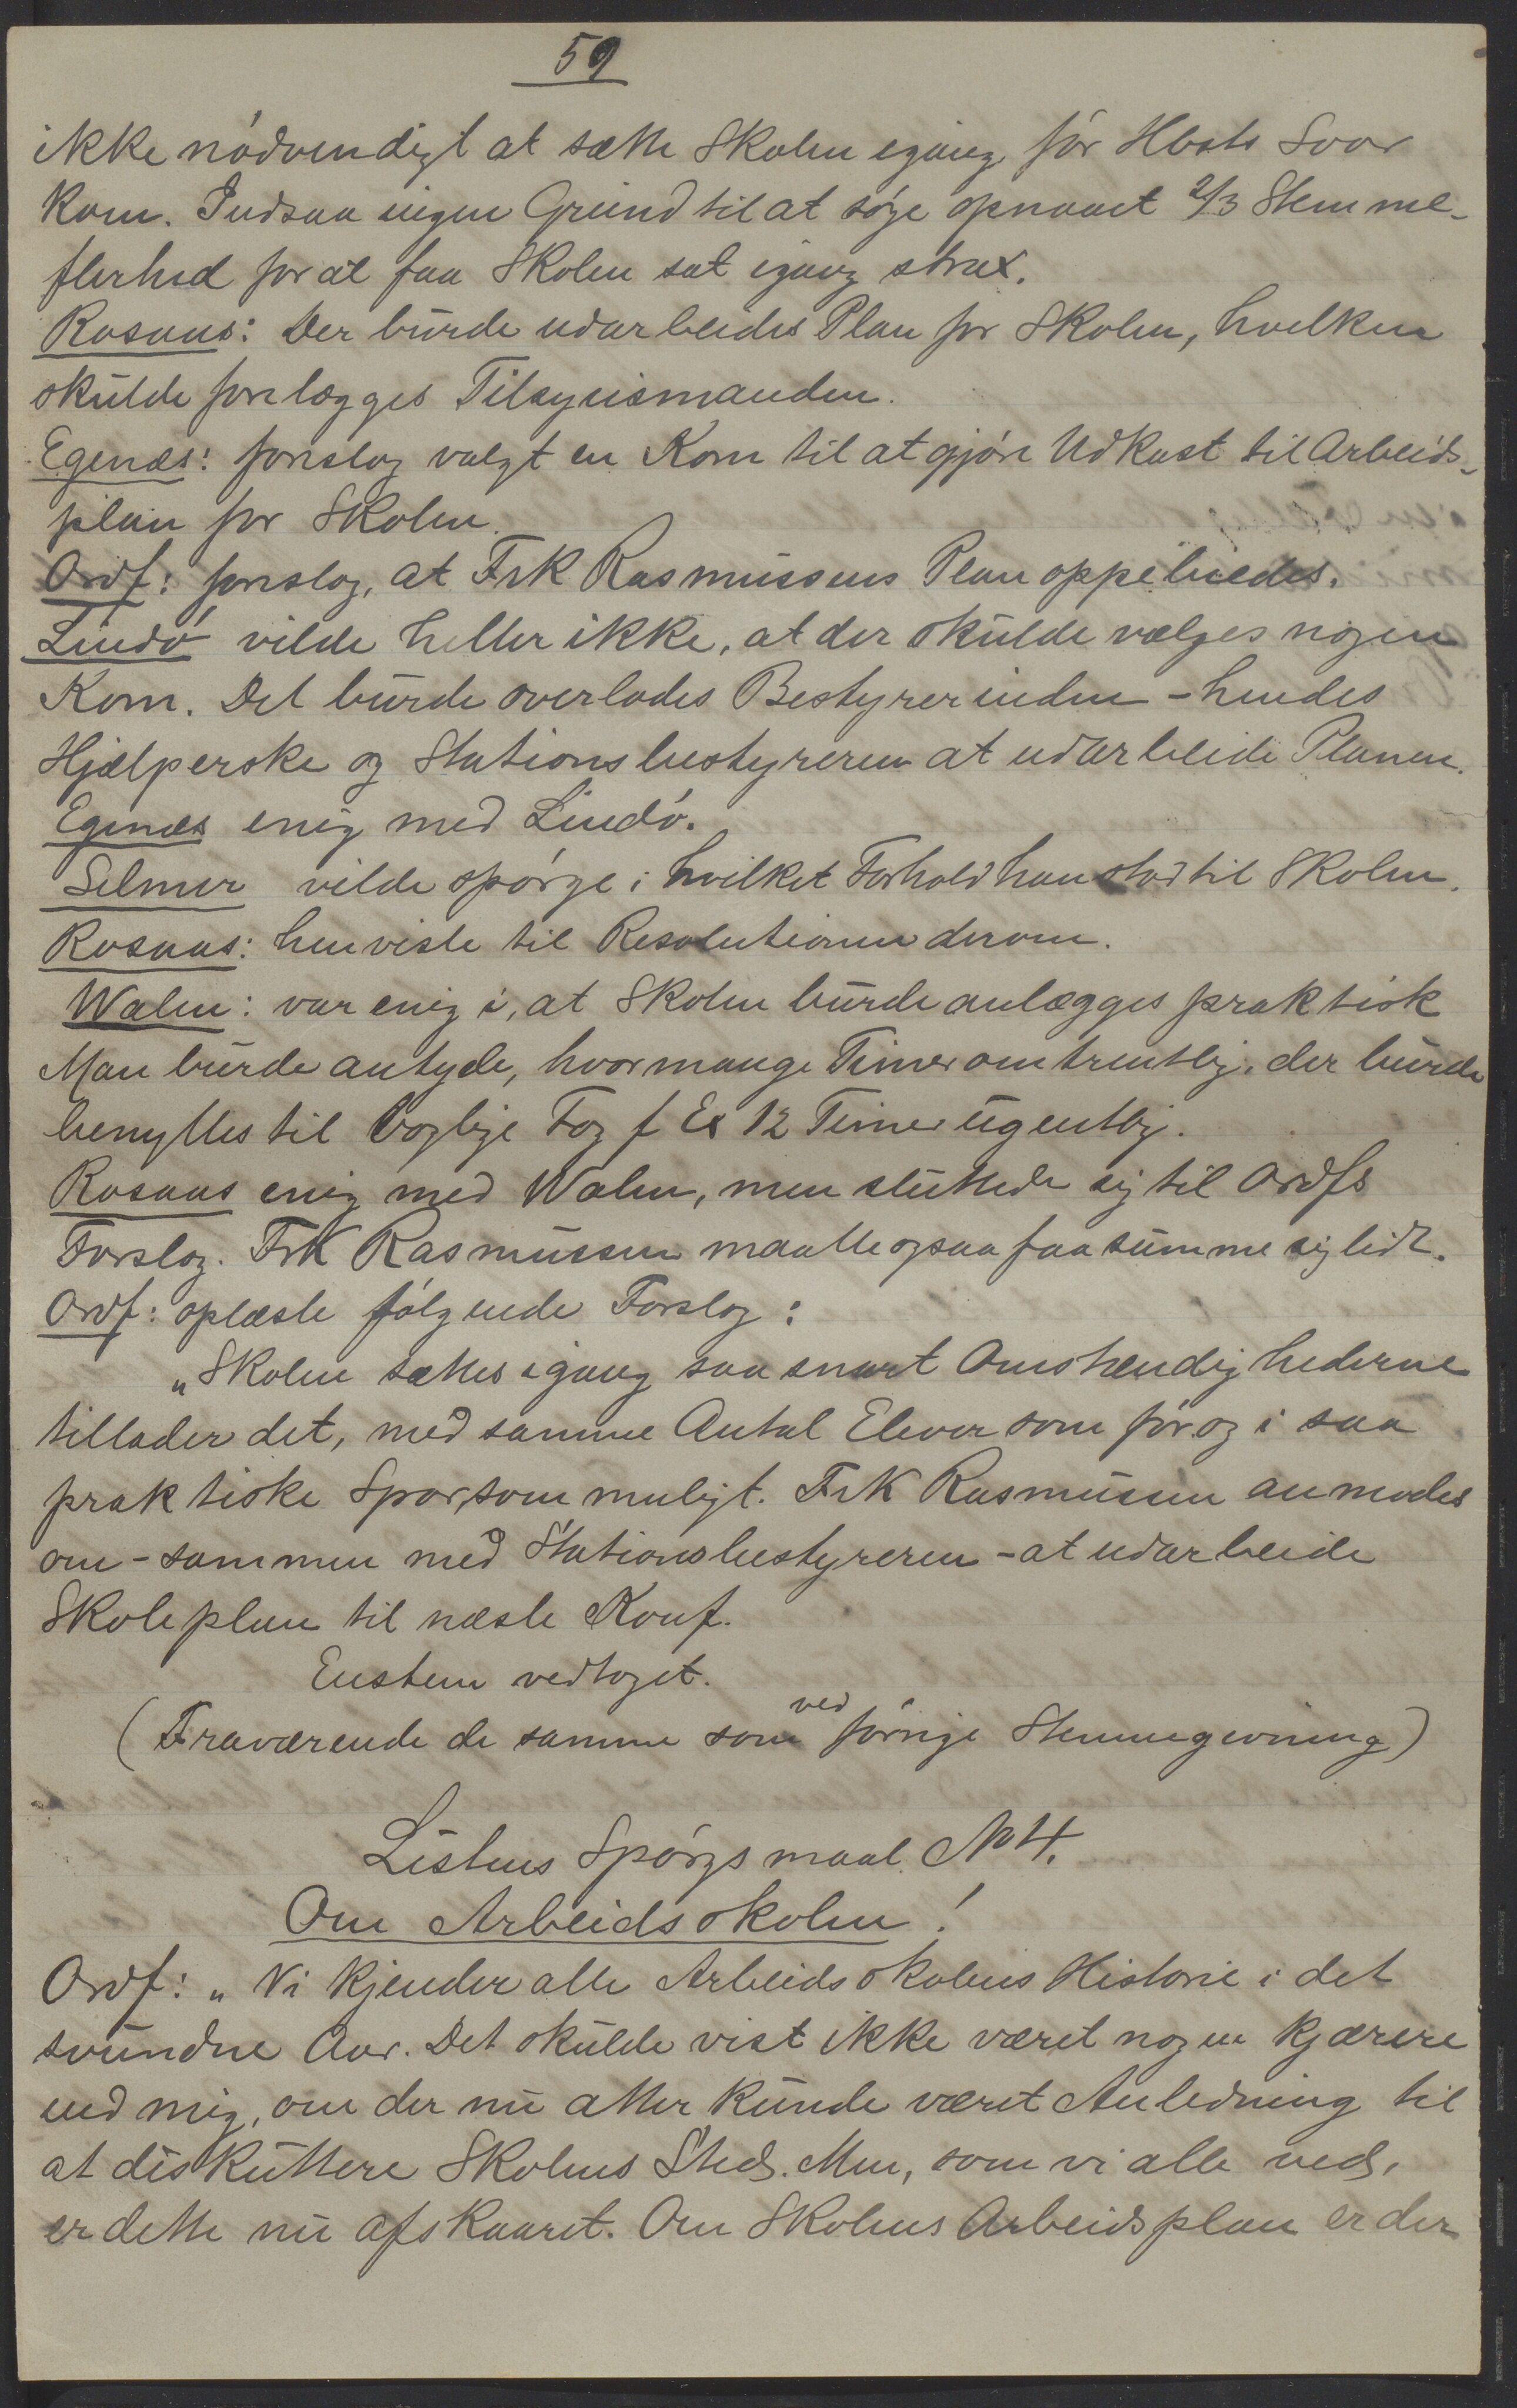 59
ikke nødvendigt at sætte Skolen igang før Hbsts Svar
kom. Indsaa ingen Grund til at søge opnaaet 2/3 Stemme-
flerhed for at faa Skolen sat igang strax.
Rosaas: Der burde udarbeides Plan for Skolen, hvilken
skulde forelægges Tilsynsmanden.
Egenæs: foreslog valgt en Kom til at gjøre Udkast til Arbeids-
plan for Skolen.
Ordf: foreslog, at Frk Rasmussens Plan oppebiedes.
Lindø vilde heller ikke, at der skulde vælges nogen
Kom. Det burde overlades Bestyrerinden - hendes
Hjælperske og Stationsbestyreren at udarbeide Planen.
Egenæs enig med Lindø.
Selmer vilde spørge i hvilket Forhold han stod til Skolen.
Rosaas: henviste til Resolutionen derom.
Walen: var enig i, at Skolen burde anlægges praktisk
Man burde antyde, hvormange Timer omtrentlig, der burde
benyttes til boglige Fag f Ex 12 Timer ugentlig.
Rosaas enig med Walen, men sluttede sig til Ordfs
Forslag. Frk Rasmussen maatte ogsaa faa summe sig lidt.
Ordf: oplæste følgende Forslag:
„Skolen sættes igang saa snart Omstændighederne
tillader det, med samme Antal Elever som før og i saa
praktiske Spor, som muligt. Frk Rasmussen anmodes
om - sammen med Stationsbestyreren - at udarbeide
Skoleplan til næste Konf.
Enstem vedtaget.
(Fraværende de samme som ved forrige Stemmegivning)
Listens Spørgsmaal No 4.
Om Arbeidsskolen!
Ordf: „Vi kjender alle Arbeidsskolens Historie i det
svundne Aar. Det skulde vist ikke været nogen kjærere
end mig, om der nu atter kunde været Anledning til
at diskuttere Skolens Sted. Men, som vi alle ved,
er dette nu afskaaret. Om Skolens Arbeidsplan er der